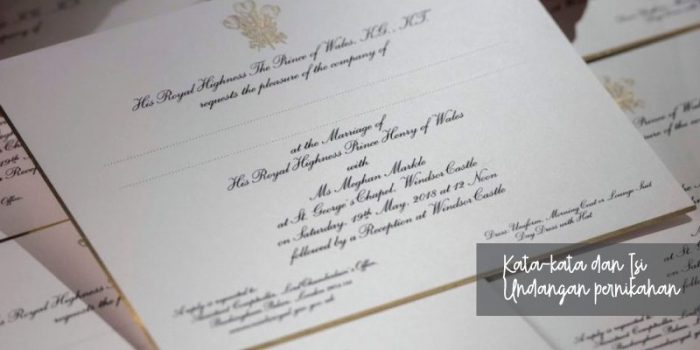 His Royal Highness The Prince of Wales, K.G., K.T.
requests the pleasure of the company of
at the Marriage of
His Royal Highness Prince Henry of Wales
with
Ms Meghan Markle
at St. George's Chapel, Windsor Castle
on Saturday, 19th May, 2018 at 12 Noon
followed by a Reception at Windsor Castle
Dress: Uniform, Morning Coat or Lounge Suit
Day Dress with Hat
A reply is requested to:
Buckingham Palace, London
Kata-kata dan Isi
Undangan pernikahan